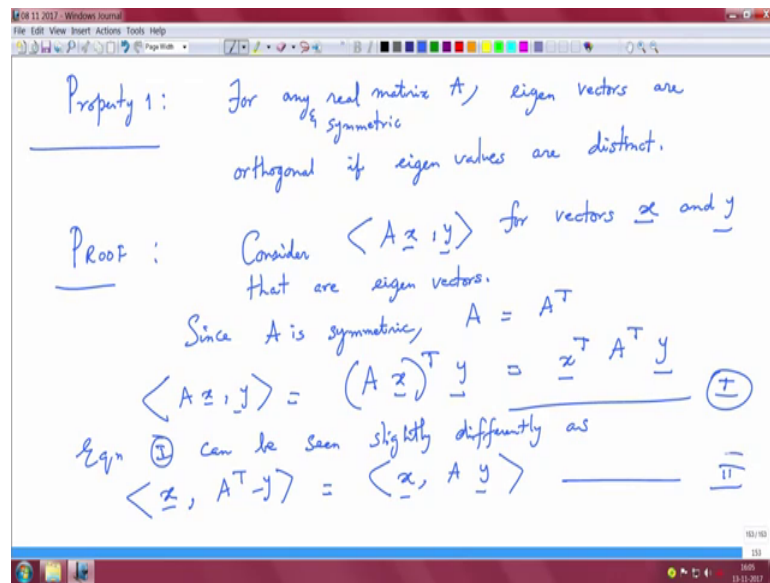 08 11 2017 - Windows Journal
File Edit View Insert Actions Tools Help
Page Width
Property 1: For any real matrix A, eigen vectors are
& symmetric
orthogonal if eigen values are distinct.
PROOF : Consider < A x , y > for vectors x and y
that are eigen vectors.
Since A is symmetric, A = A^T
< A x , y > = (A x)^T y = x^T A^T y I
Eqn I can be seen slightly differently as
< x , A^T y > = < x , A y > II
153/163
153
16:05
13-11-2017